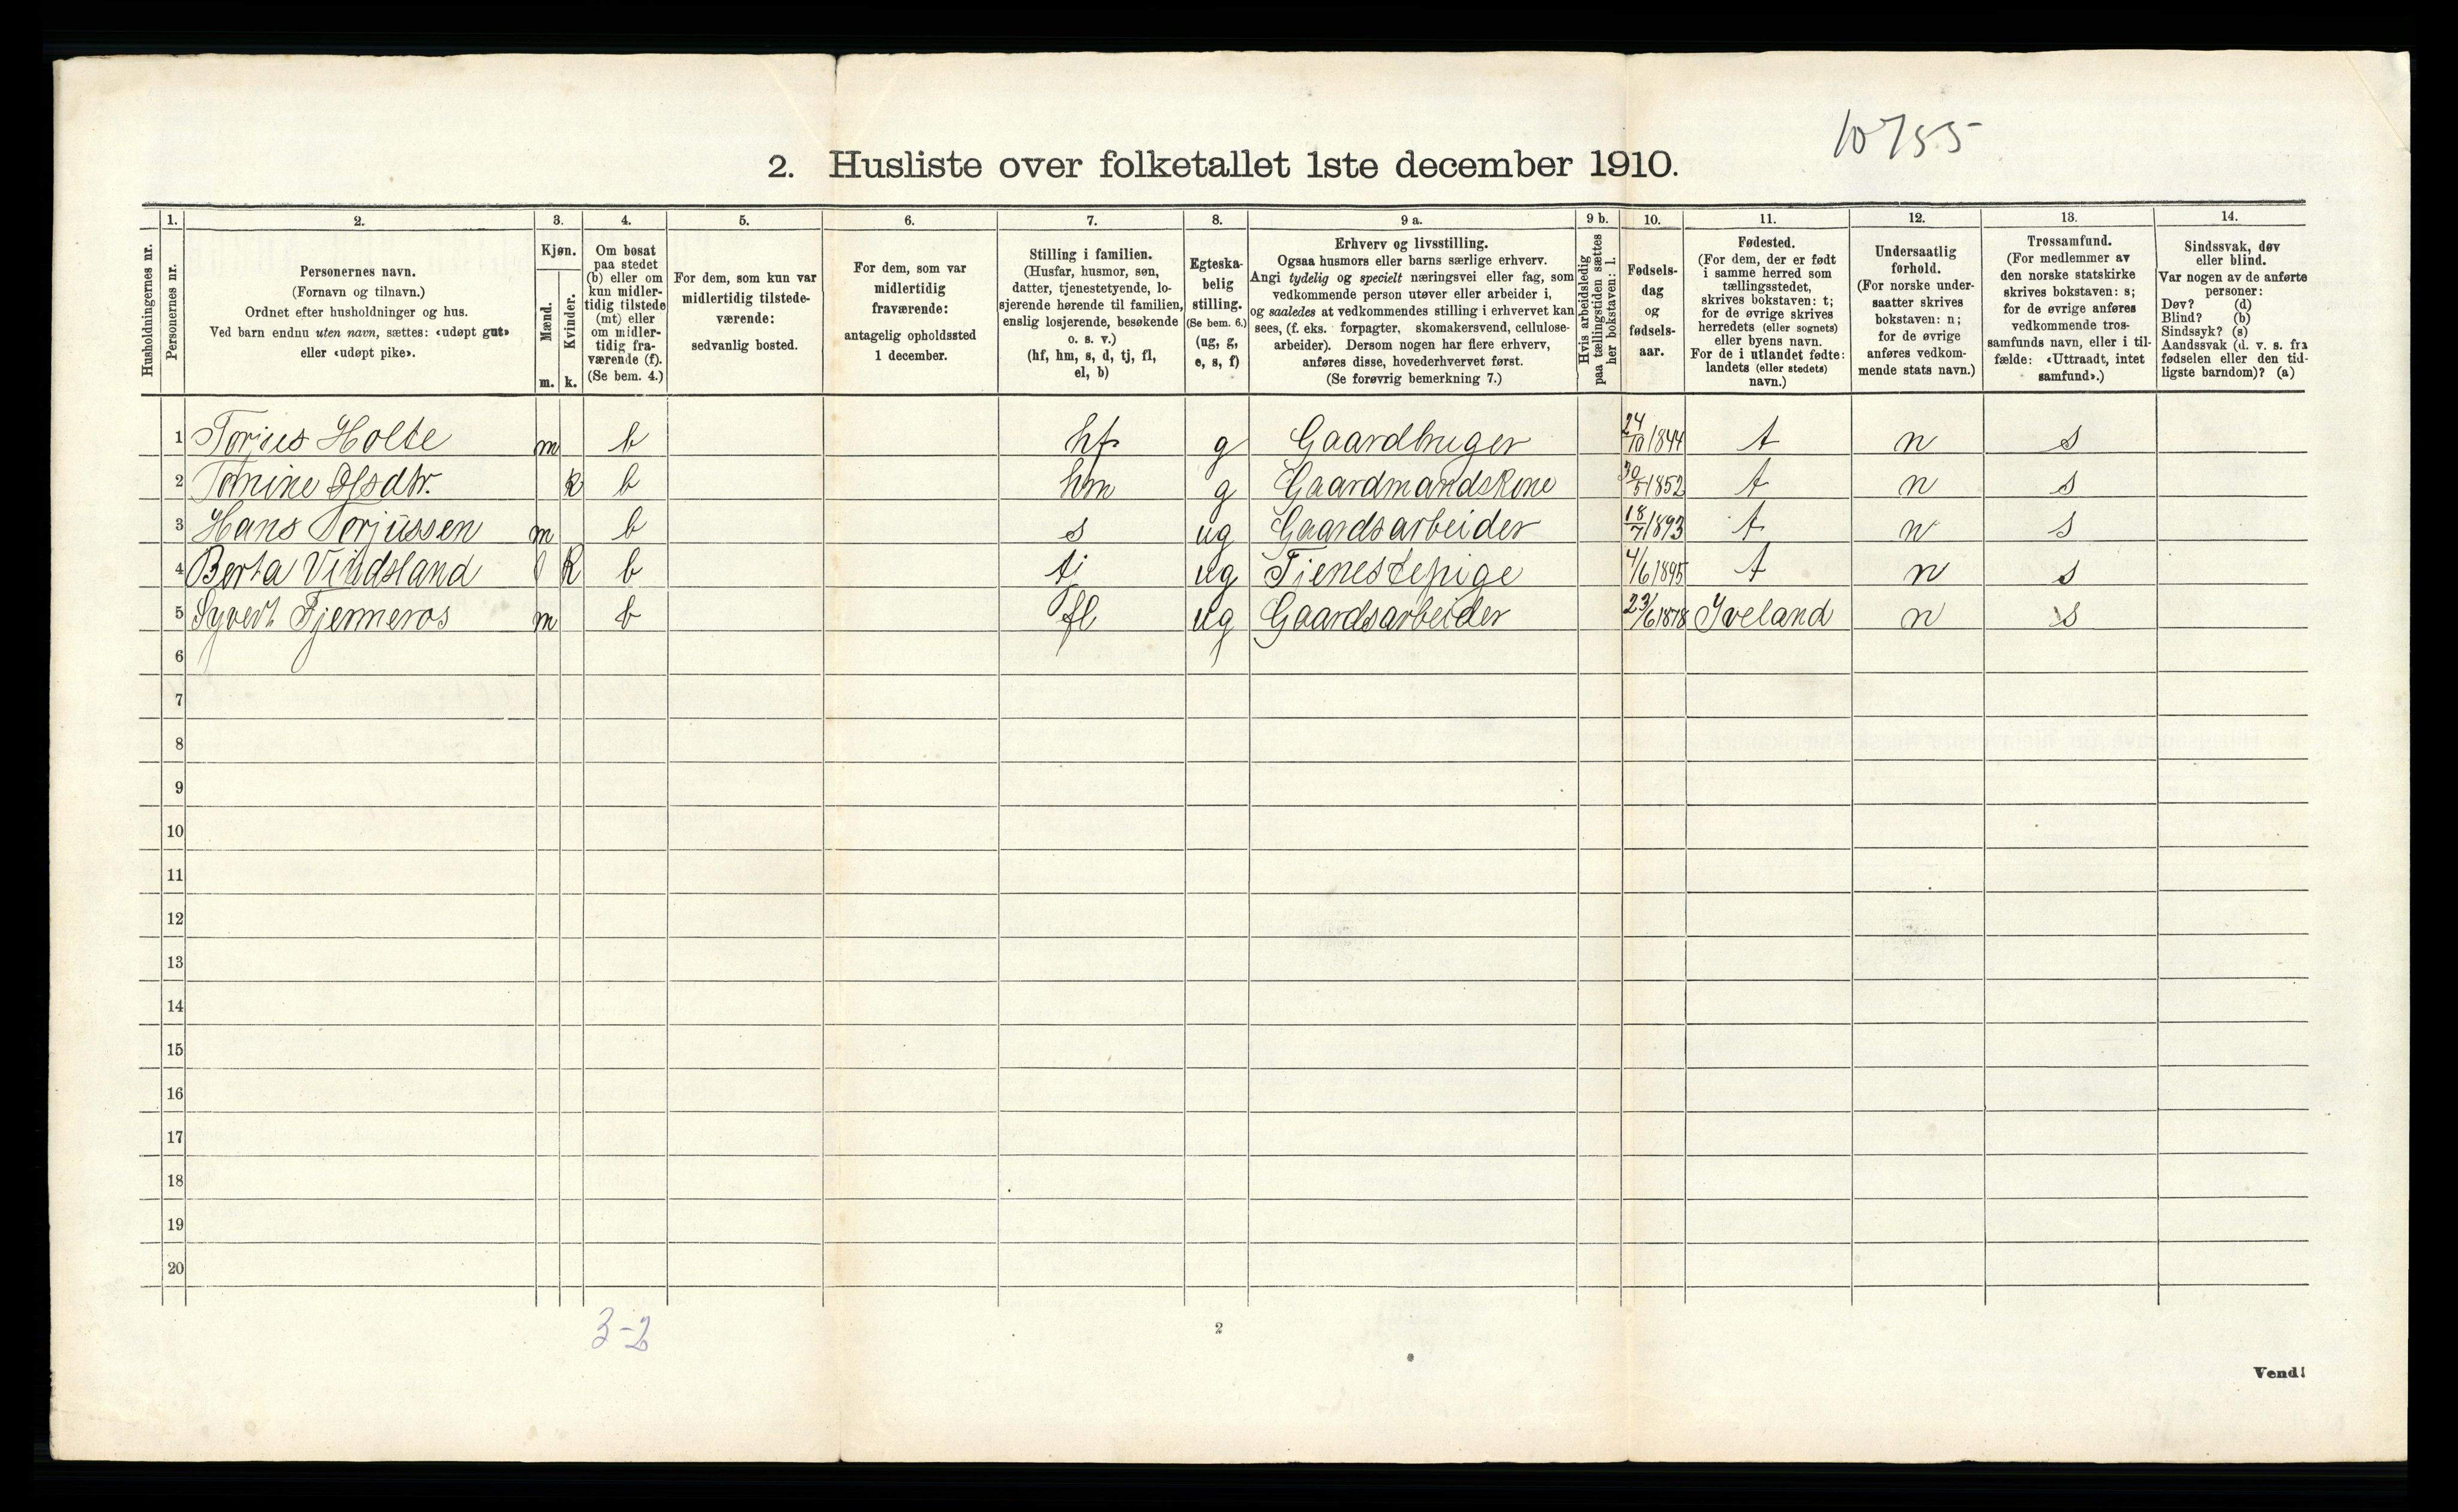 10755
2. Husliste over folketallet 1ste december 1910.
Husholdningernes nr.
1.
Personernes nr.
2.
Personernes navn.
(Fornavn og tilnavn.)
Ordnet efter husholdninger og hus.
Ved barn endnu uten navn, sættes: «udøpt gut»
eller «udøpt pike».
3.
Kjøn.
Mænd.
m.
Kvinder.
k.
4.
Om bosat
paa stedet
(b) eller om
kun midler-
tidig tilstede
(mt) eller
om midler-
tidig fra-
værende (f).
(Se bem. 4.)
5.
For dem, som kun var
midlertidig tilstede-
værende:
sedvanlig bosted.
6.
For dem, som var
midlertidig
fraværende:
antagelig opholdssted
1 december.
7.
Stilling i familien.
(Husfar, husmor, søn,
datter, tjenestetyende, lo-
sjerende hørende til familien,
enslig losjerende, besøkende
o. s. v.)
(hf, hm, s, d, tj, fl,
el, b)
8.
Egteska-
belig
stilling.
(Se bem. 6.)
(ug, g,
e, s, f)
9 a.
Erhverv og livsstilling.
Ogsaa husmors eller barns særlige erhverv.
Angi tydelig og specielt næringsvei eller fag, som
vedkommende person utøver eller arbeider i,
og saaledes at vedkommendes stilling i erhvervet kan
sees, (f. eks. forpagter, skomakersvend, cellulose-
arbeider). Dersom nogen har flere erhverv,
anføres disse, hovederhvervet først.
(Se forøvrig bemerkning 7.)
9 b.
Hvis arbeidsledig
paa tællingstiden sættes
her bokstaven: l.
10.
Fødsels-
dag
og
fødsels-
aar.
11.
Fødested.
(For dem, der er født
i samme herred som
tællingsstedet,
skrives bokstaven: t;
for de øvrige skrives
herredets (eller sognets)
eller byens navn.
For de i utlandet fødte:
landets (eller stedets)
navn.)
12.
Undersaatlig
forhold.
(For norske under-
saatter skrives
bokstaven: n;
for de øvrige
anføres vedkom-
mende stats navn.)
13.
Trossamfund.
(For medlemmer av
den norske statskirke
skrives bokstaven: s;
for de øvrige anføres
vedkommende tros-
samfunds navn, eller i til-
fælde: «Uttraadt, intet
samfund».)
14.
Sindssvak, døv
eller blind.
Var nogen av de anførte
personer:
Døv? (d)
Blind? (b)
Sindssyk? (s)
Aandssvak (d. v. s. fra
fødselen eller den tid-
ligste barndom)? (a)
1 Torjus Holte m b hf g Gaardbruger 24/10 1844 t n s
2 Tomine Olsdtr. k b hm g Gaardmandskone 30/5 1852 t n s
3 Hans Torjussen m b s ug Gaardsarbeider 18/7 1893 t n s
4 Berta Vindsland k b tj ug Tjenestepige 4/6 1895 t n s
5 Syvert Tjenneros m b fl ug Gaardsarbeider 23/6 1878 Iveland n s
6
7
8
9
10
11
12
13
14
15
16
17
18
19
20
3-2
2
Vend!